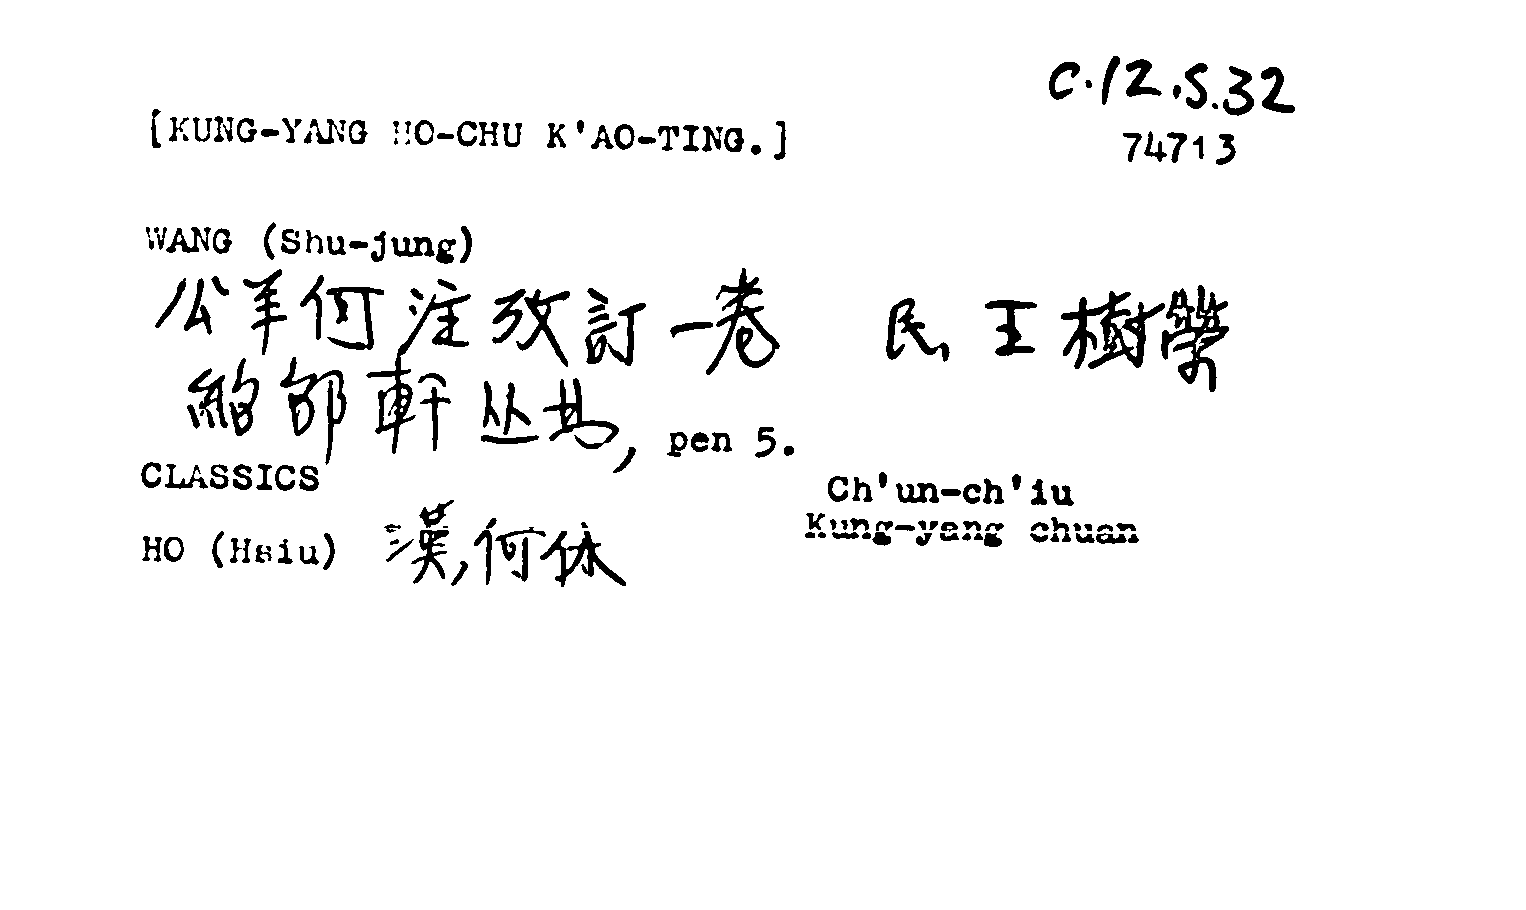 C.12.S.32
[KUNG-YANG HO-CHU K'AO-TING.]
74713
WANG (Shu-jung)
公羊何注攷訂一卷 民 王樹榮
紹邵軒丛书, pen 5.
CLASSICS
Ch'un-ch'iu
Kung-yang chuan
HO (Hsiu) 漢,何休